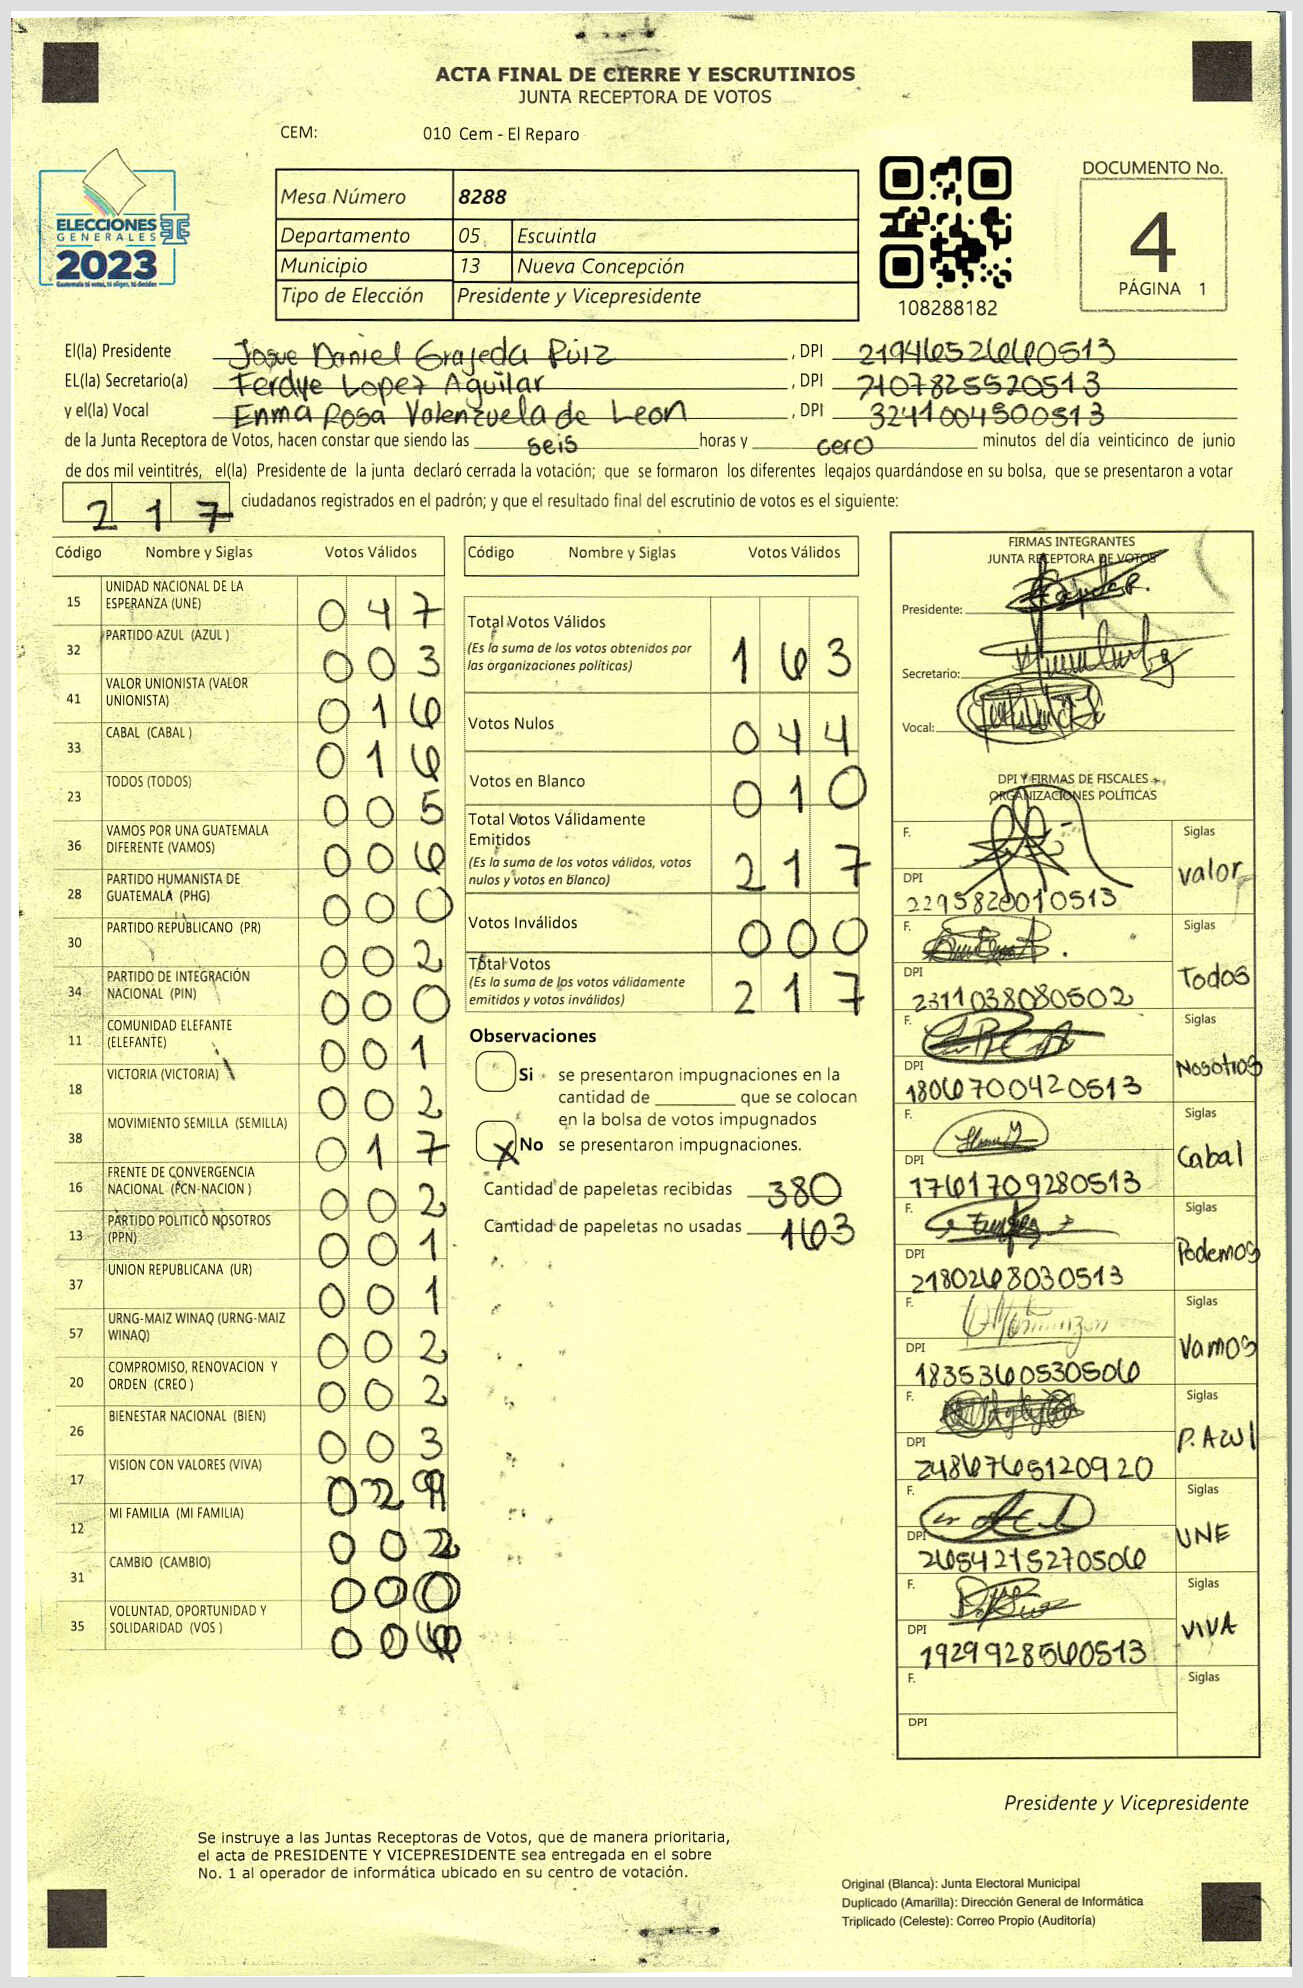 ACTA FINAL DE CIERRE Y ESCRUTINIOS
JUNTA RECEPTORA DE VOTOS
CEM: 010 Cem - El Reparo
ELECCIONES
GENERALES
2023
Guatemala tú votas, tú eliges, tú decides
Mesa Número 8288
Departamento 05 Escuintla
Municipio 13 Nueva Concepción
Tipo de Elección Presidente y Vicepresidente
108288182
DOCUMENTO No.
4
PÁGINA 1
El(la) Presidente Josue Daniel Grajeda Ruiz , DPI 2194652660513
EL(la) Secretario(a) Ferdye Lopez Aguilar , DPI 2107825520513
y el(la) Vocal Enma Rosa Valenzuela de Leon , DPI 3241004500513
de la Junta Receptora de Votos, hacen constar que siendo las seis horas y cero minutos del día veinticinco de junio
de dos mil veintitrés, el(la) Presidente de la junta declaró cerrada la votación; que se formaron los diferentes legajos quardándose en su bolsa, que se presentaron a votar
217 ciudadanos registrados en el padrón; y que el resultado final del escrutinio de votos es el siguiente:
Código Nombre y Siglas Votos Válidos
15 UNIDAD NACIONAL DE LA ESPERANZA (UNE) 047
32 PARTIDO AZUL (AZUL ) 003
41 VALOR UNIONISTA (VALOR UNIONISTA) 016
33 CABAL (CABAL ) 016
23 TODOS (TODOS) 005
36 VAMOS POR UNA GUATEMALA DIFERENTE (VAMOS) 006
28 PARTIDO HUMANISTA DE GUATEMALA (PHG) 000
30 PARTIDO REPUBLICANO (PR) 002
34 PARTIDO DE INTEGRACIÓN NACIONAL (PIN) 000
11 COMUNIDAD ELEFANTE (ELEFANTE) 001
18 VICTORIA (VICTORIA) 002
38 MOVIMIENTO SEMILLA (SEMILLA) 017
16 FRENTE DE CONVERGENCIA NACIONAL (FCN-NACION ) 002
13 PARTIDO POLITICO NOSOTROS (PPN) 001
37 UNION REPUBLICANA (UR) 001
57 URNG-MAIZ WINAQ (URNG-MAIZ WINAQ) 002
20 COMPROMISO, RENOVACION Y ORDEN (CREO ) 002
26 BIENESTAR NACIONAL (BIEN) 003
17 VISION CON VALORES (VIVA) 029
12 MI FAMILIA (MI FAMILIA) 002
31 CAMBIO (CAMBIO) 000
35 VOLUNTAD, OPORTUNIDAD Y SOLIDARIDAD (VOS ) 006
Código Nombre y Siglas Votos Válidos
Total Votos Válidos 163
(Es la suma de los votos obtenidos por
las organizaciones políticas)
Votos Nulos 044
Votos en Blanco 010
Total Votos Válidamente
Emitidos 217
(Es la suma de los votos válidos, votos
nulos y votos en blanco)
Votos Inválidos 000
Total Votos 217
(Es la suma de los votos válidamente
emitidos y votos inválidos)
Observaciones
Si se presentaron impugnaciones en la
cantidad de ________ que se colocan
en la bolsa de votos impugnados
X No se presentaron impugnaciones.
Cantidad de papeletas recibidas 380
Cantidad de papeletas no usadas 163
FIRMAS INTEGRANTES
JUNTA RECEPTORA DE VOTOS
Presidente:
Secretario:
Vocal:
DPI Y FIRMAS DE FISCALES
ORGANIZACIONES POLÍTICAS
F. Siglas valor
DPI 2295820010513
F. Siglas Todos
DPI 2311038080502
F. Siglas Nosotros
DPI 1806700420513
F. Siglas Cabal
DPI 1761709280513
F. Siglas Podemos
DPI 2180268030513
F. Siglas Vamos
DPI 1835360530506
F. Siglas P. AZUl
DPI 2486765120920
F. Siglas UNE
DPI 2654215270506
F. Siglas VIVA
DPI 1929928560513
F. Siglas
DPI
Presidente y Vicepresidente
Se instruye a las Juntas Receptoras de Votos, que de manera prioritaria,
el acta de PRESIDENTE Y VICEPRESIDENTE sea entregada en el sobre
No. 1 al operador de informática ubicado en su centro de votación.
Original (Blanca): Junta Electoral Municipal
Duplicado (Amarilla): Dirección General de Informática
Triplicado (Celeste): Correo Propio (Auditoría)